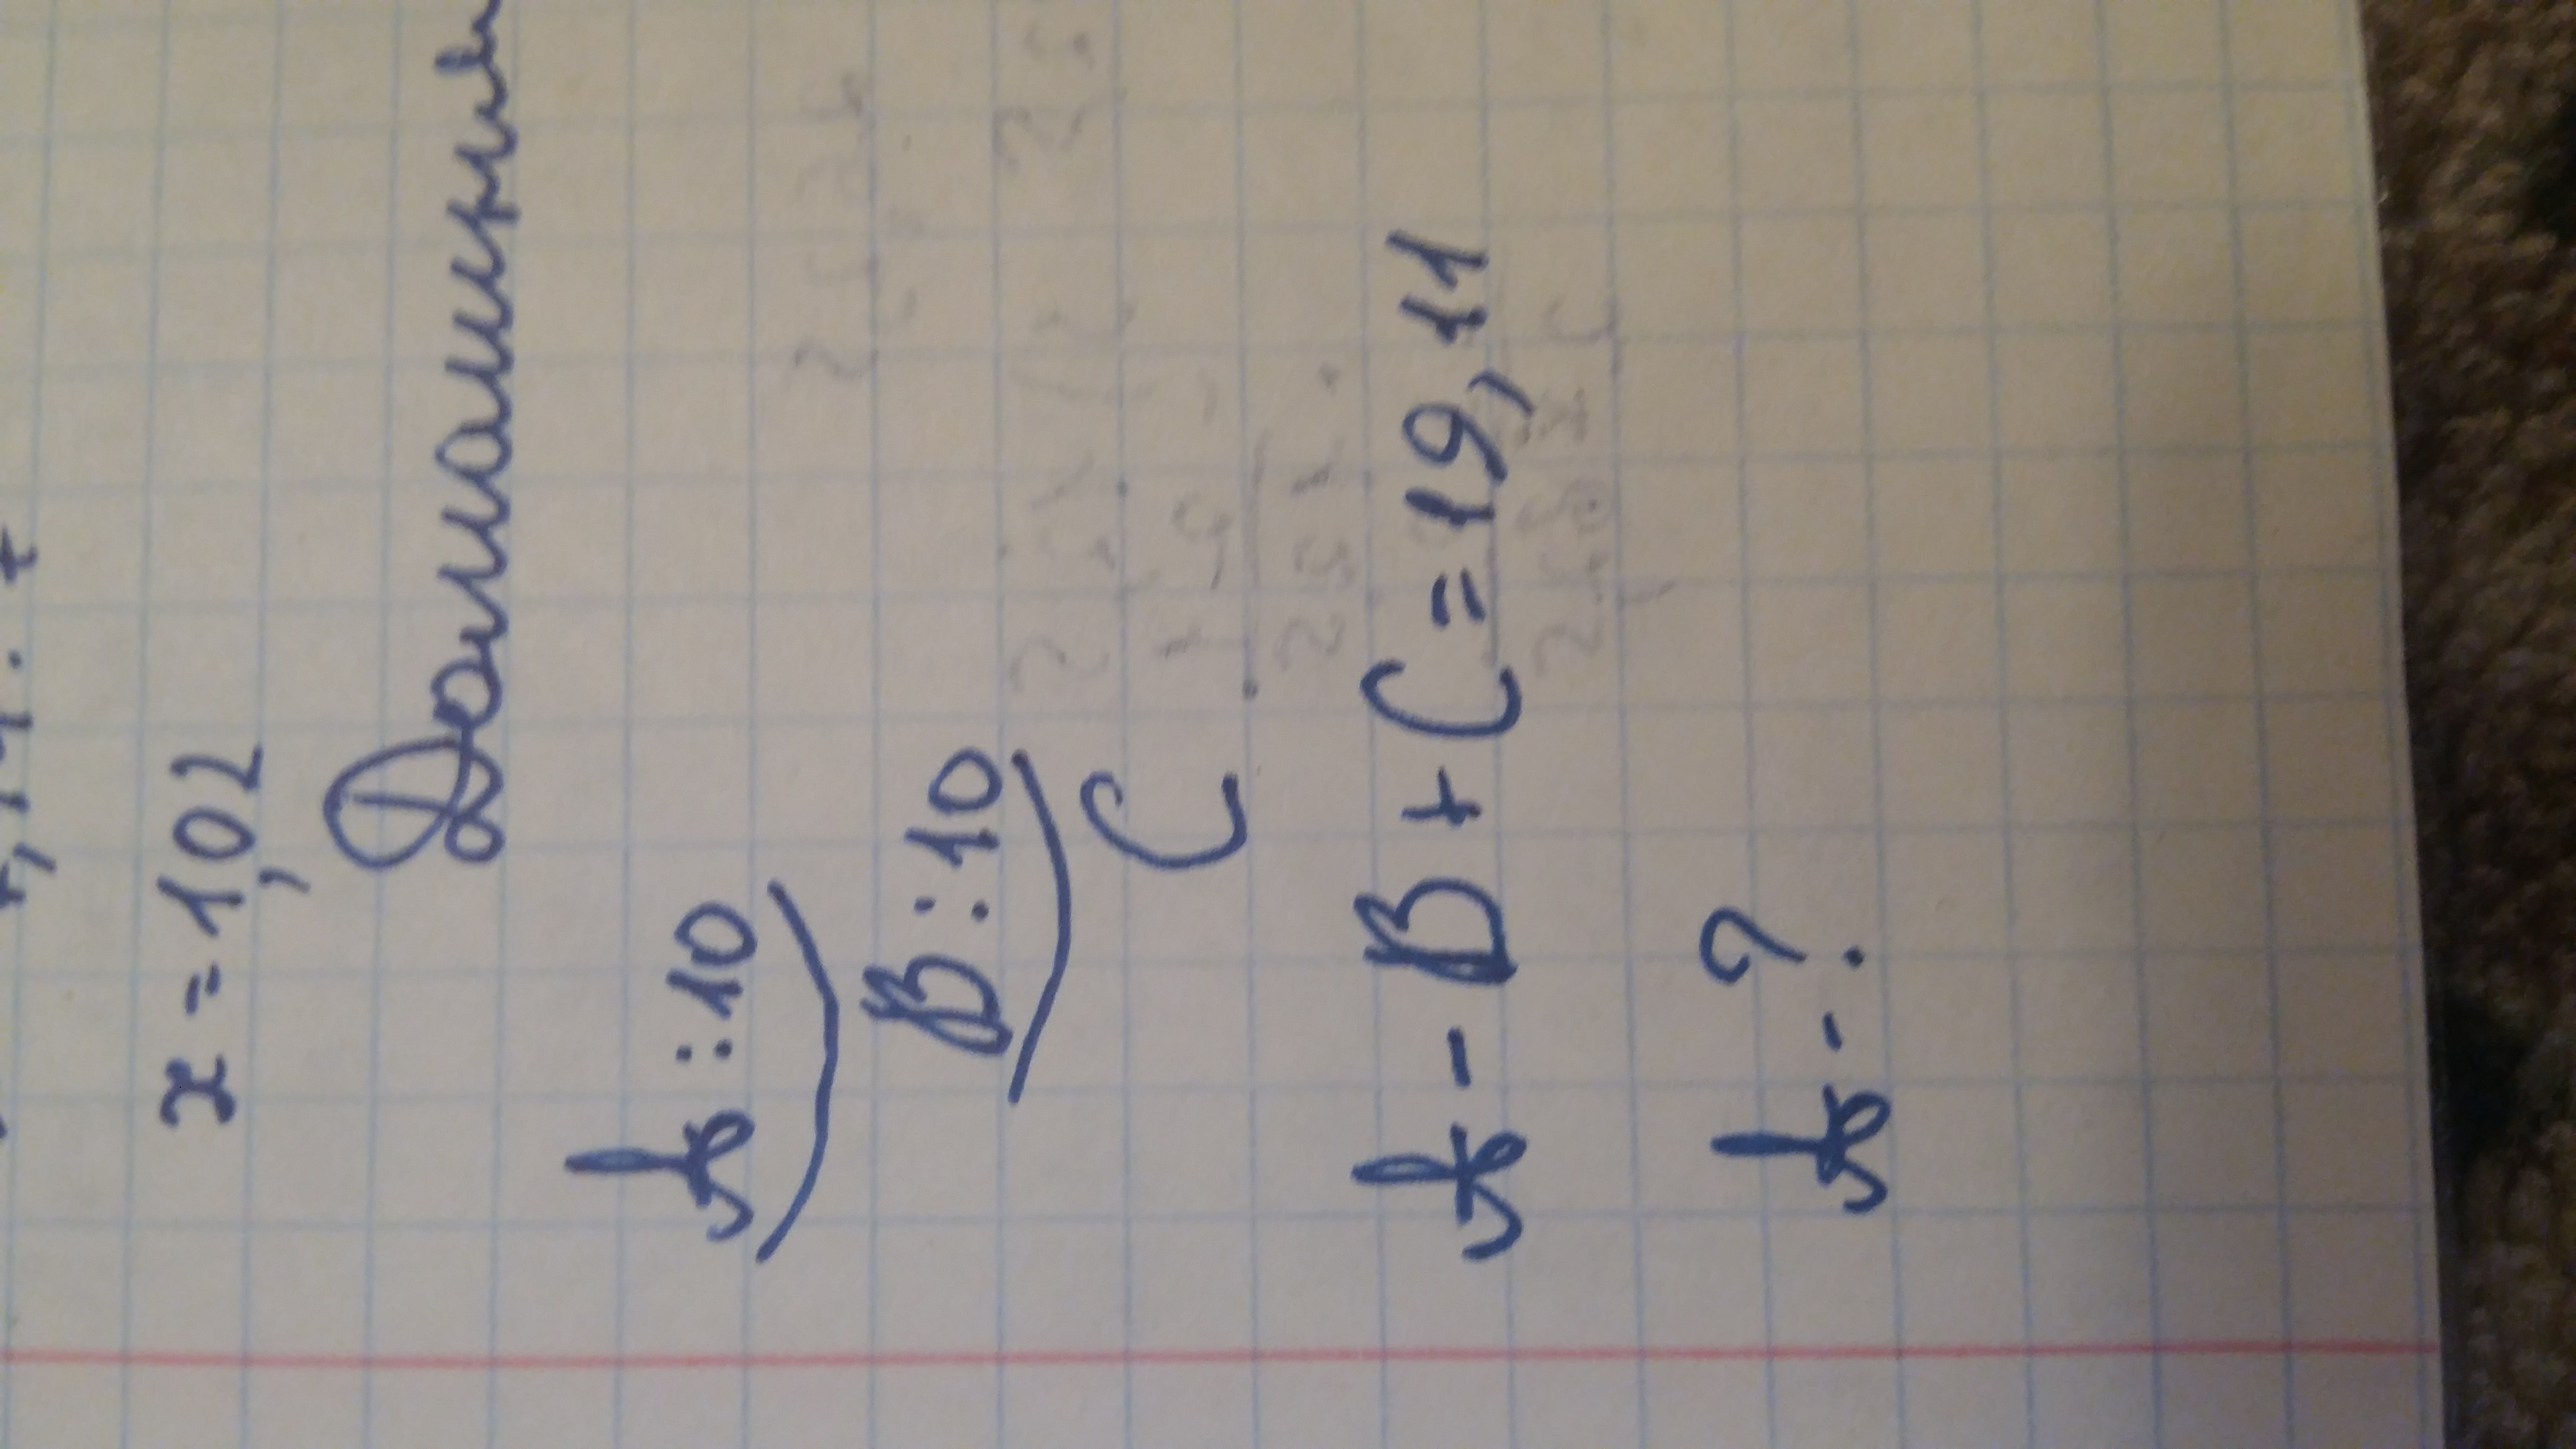 x = 1,02
Домашн
A : 10
B : 10
C
A - B + C = 19,11
A - ?